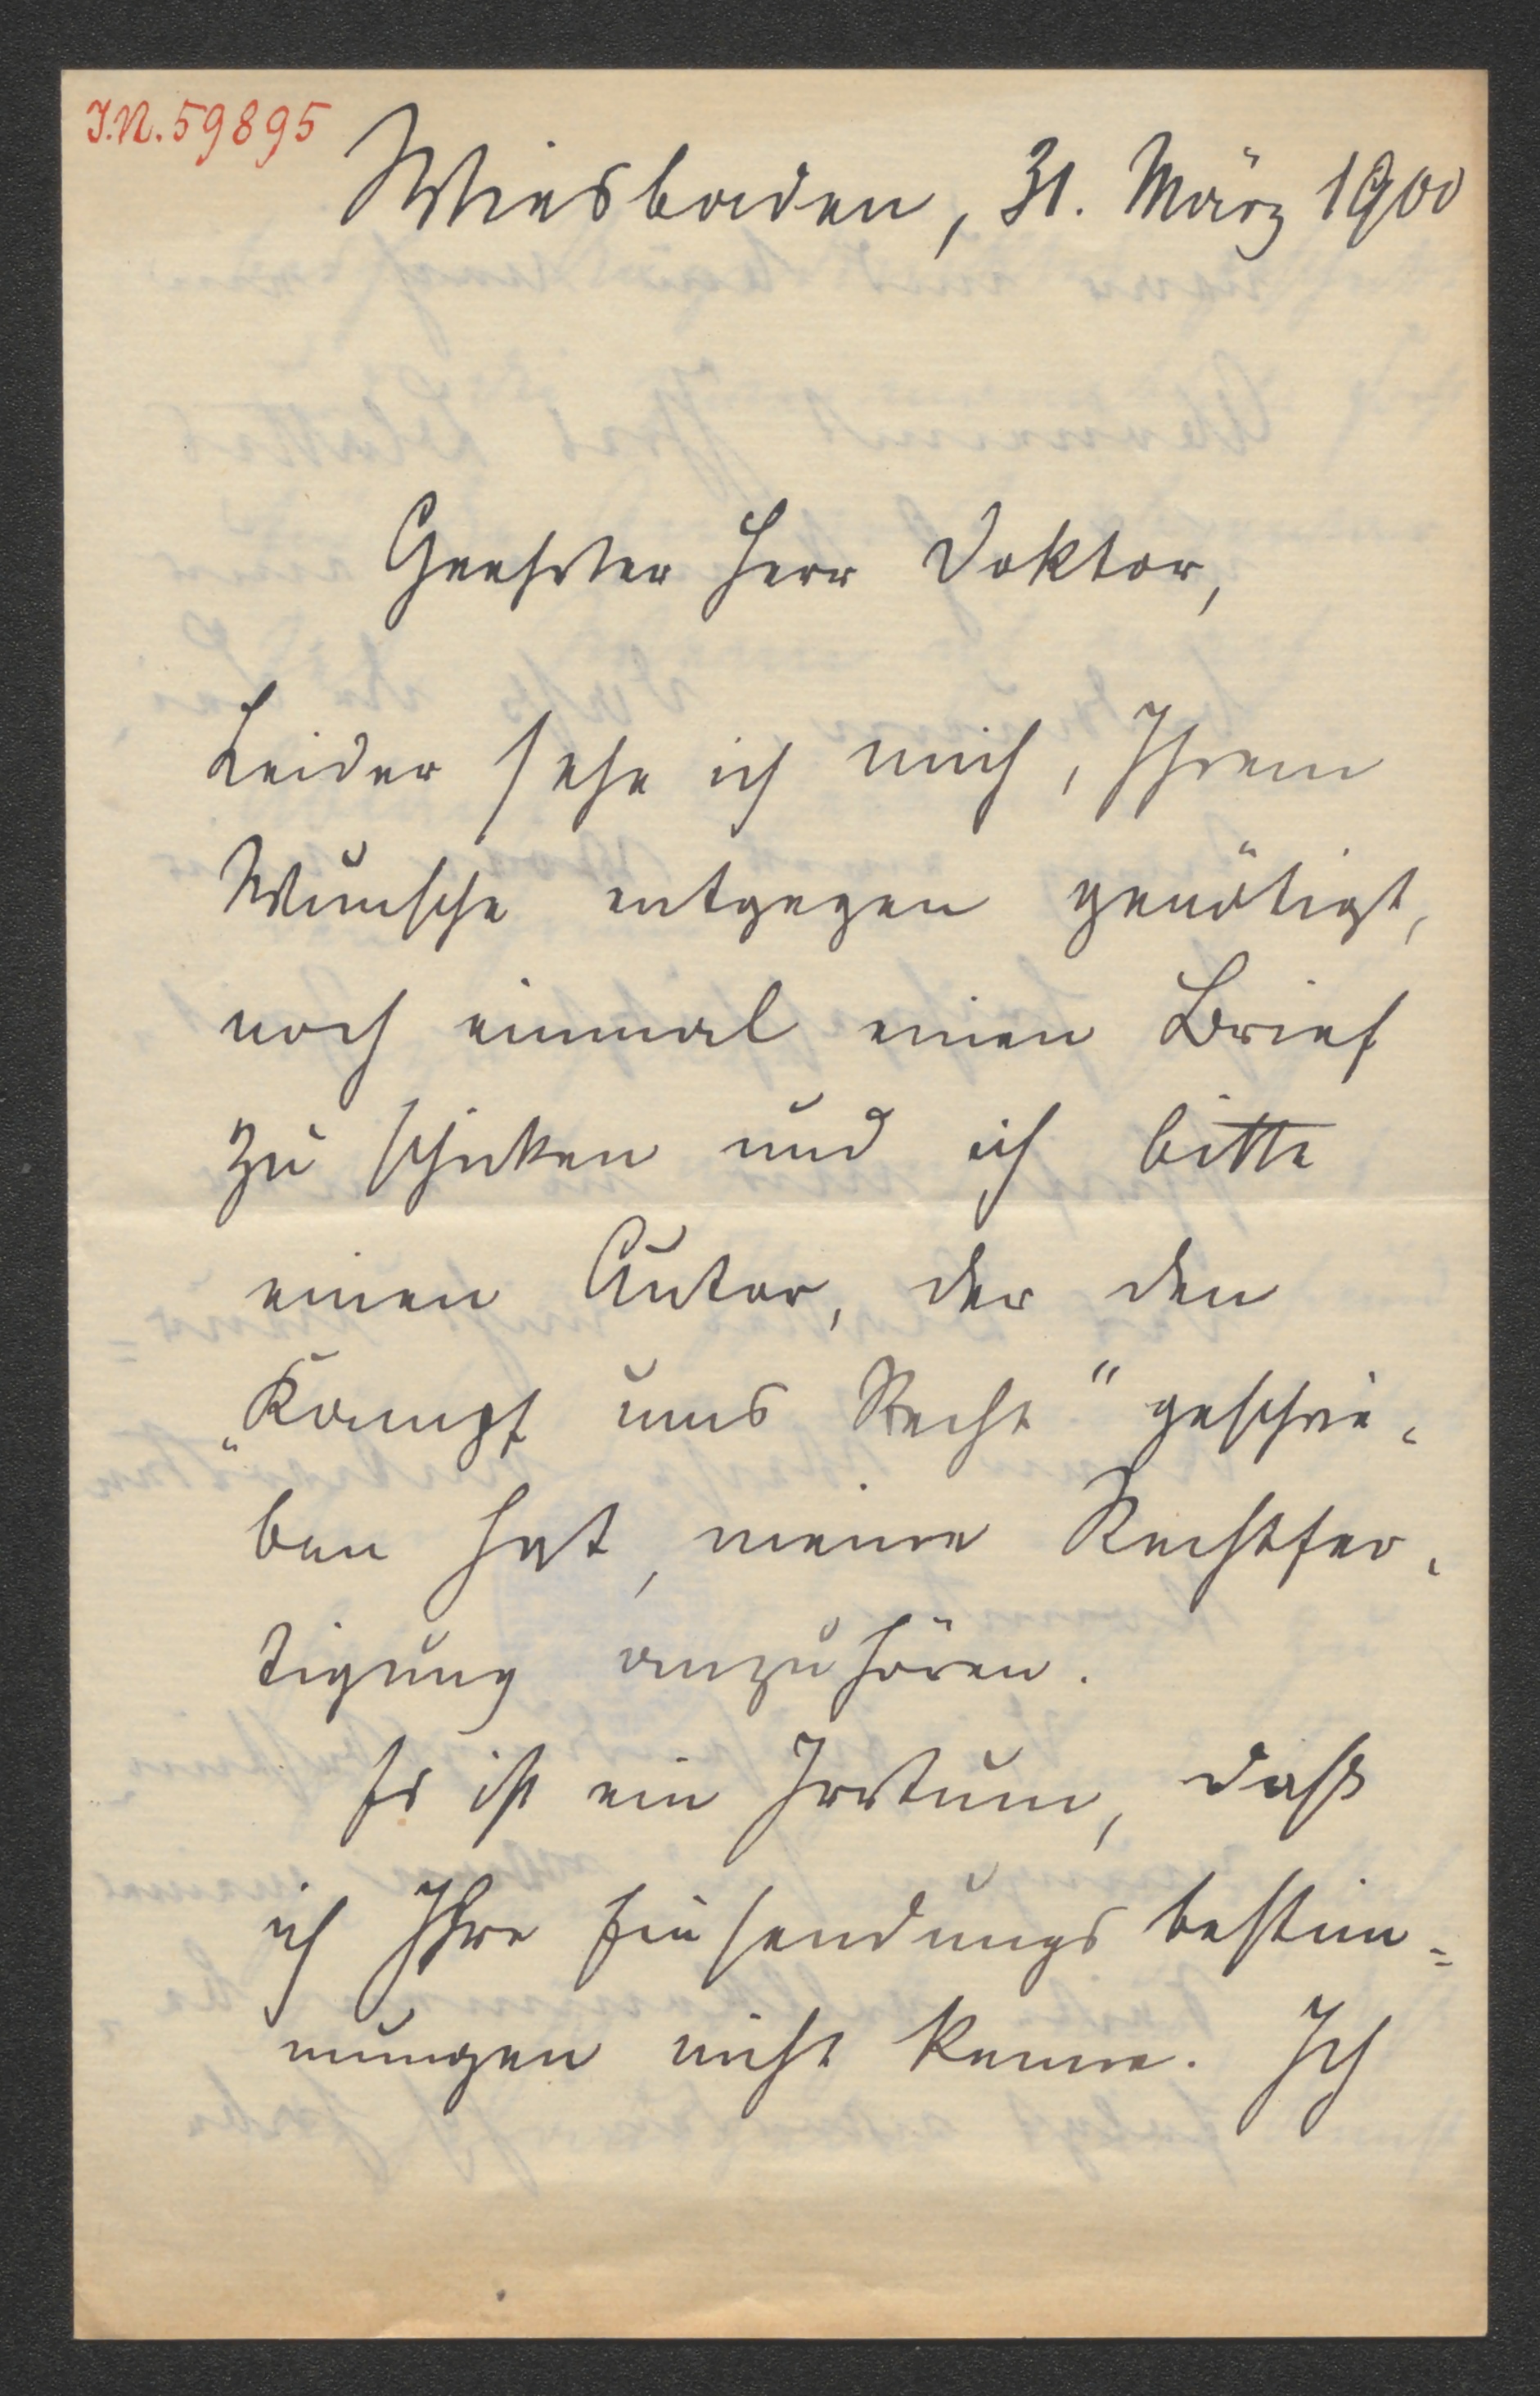 J.N. 59895
Wiesbaden, 31. März 1900
Geehrter Herr Doktor,
Leider sehe ich mich, Ihrem
Wunsche entgegen genötigt,
noch einmal einen Brief
zu schicken und ich bitte
einen Autor, der den
„Kampf ums Recht" geschrie-
ben hat, meine Rechtfer-
tigung anzuhören.
Es ist ein Irrtum, daß
ich Ihre Einsendungsbestim=
mungen nicht kenne. Ich